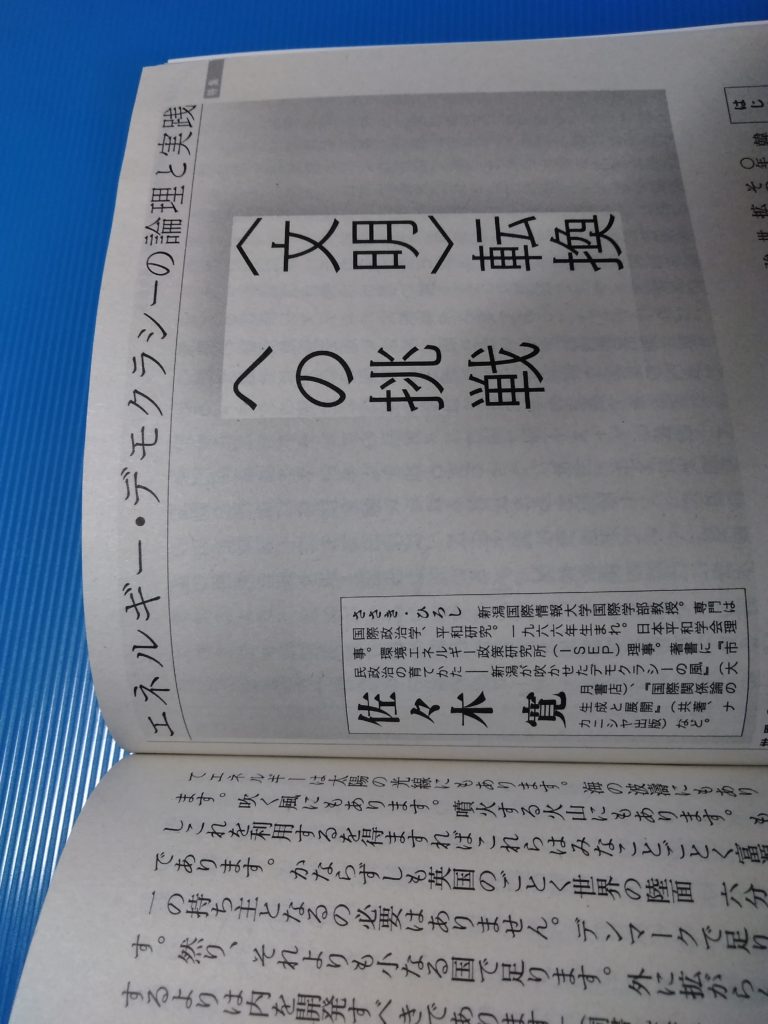 特集
エネルギー・デモクラシーの論理と実践
〈文明〉転換
への挑戦
ささき・ひろし　新潟国際情報大学国際学部教授。専門は
国際政治学、平和研究。一九六六年生まれ。日本平和学会理
事。環境エネルギー政策研究所（ISEP）理事。著書に『市
民政治の育てかた――新潟が吹かせたデモクラシーの風』（大
月書店）、『国際関係論の
生成と展開』（共著、ナ
カニシヤ出版）など。
佐々木　寛
はじ
てエネルギーは太陽の光線にもあります。海の波濤にもあり
ます。吹く風にもあります。噴火する火山にもあります。も
しこれを利用するを得ますればこれらはみなことごとく富源
であります。かならずしも英国のごとく世界の陸面　六分
一の持ち主となるの必要はありません。デンマークで足り
す。然り、それよりも小なる国で足ります。外に拡がらん
するよりは内を開発すべきであります